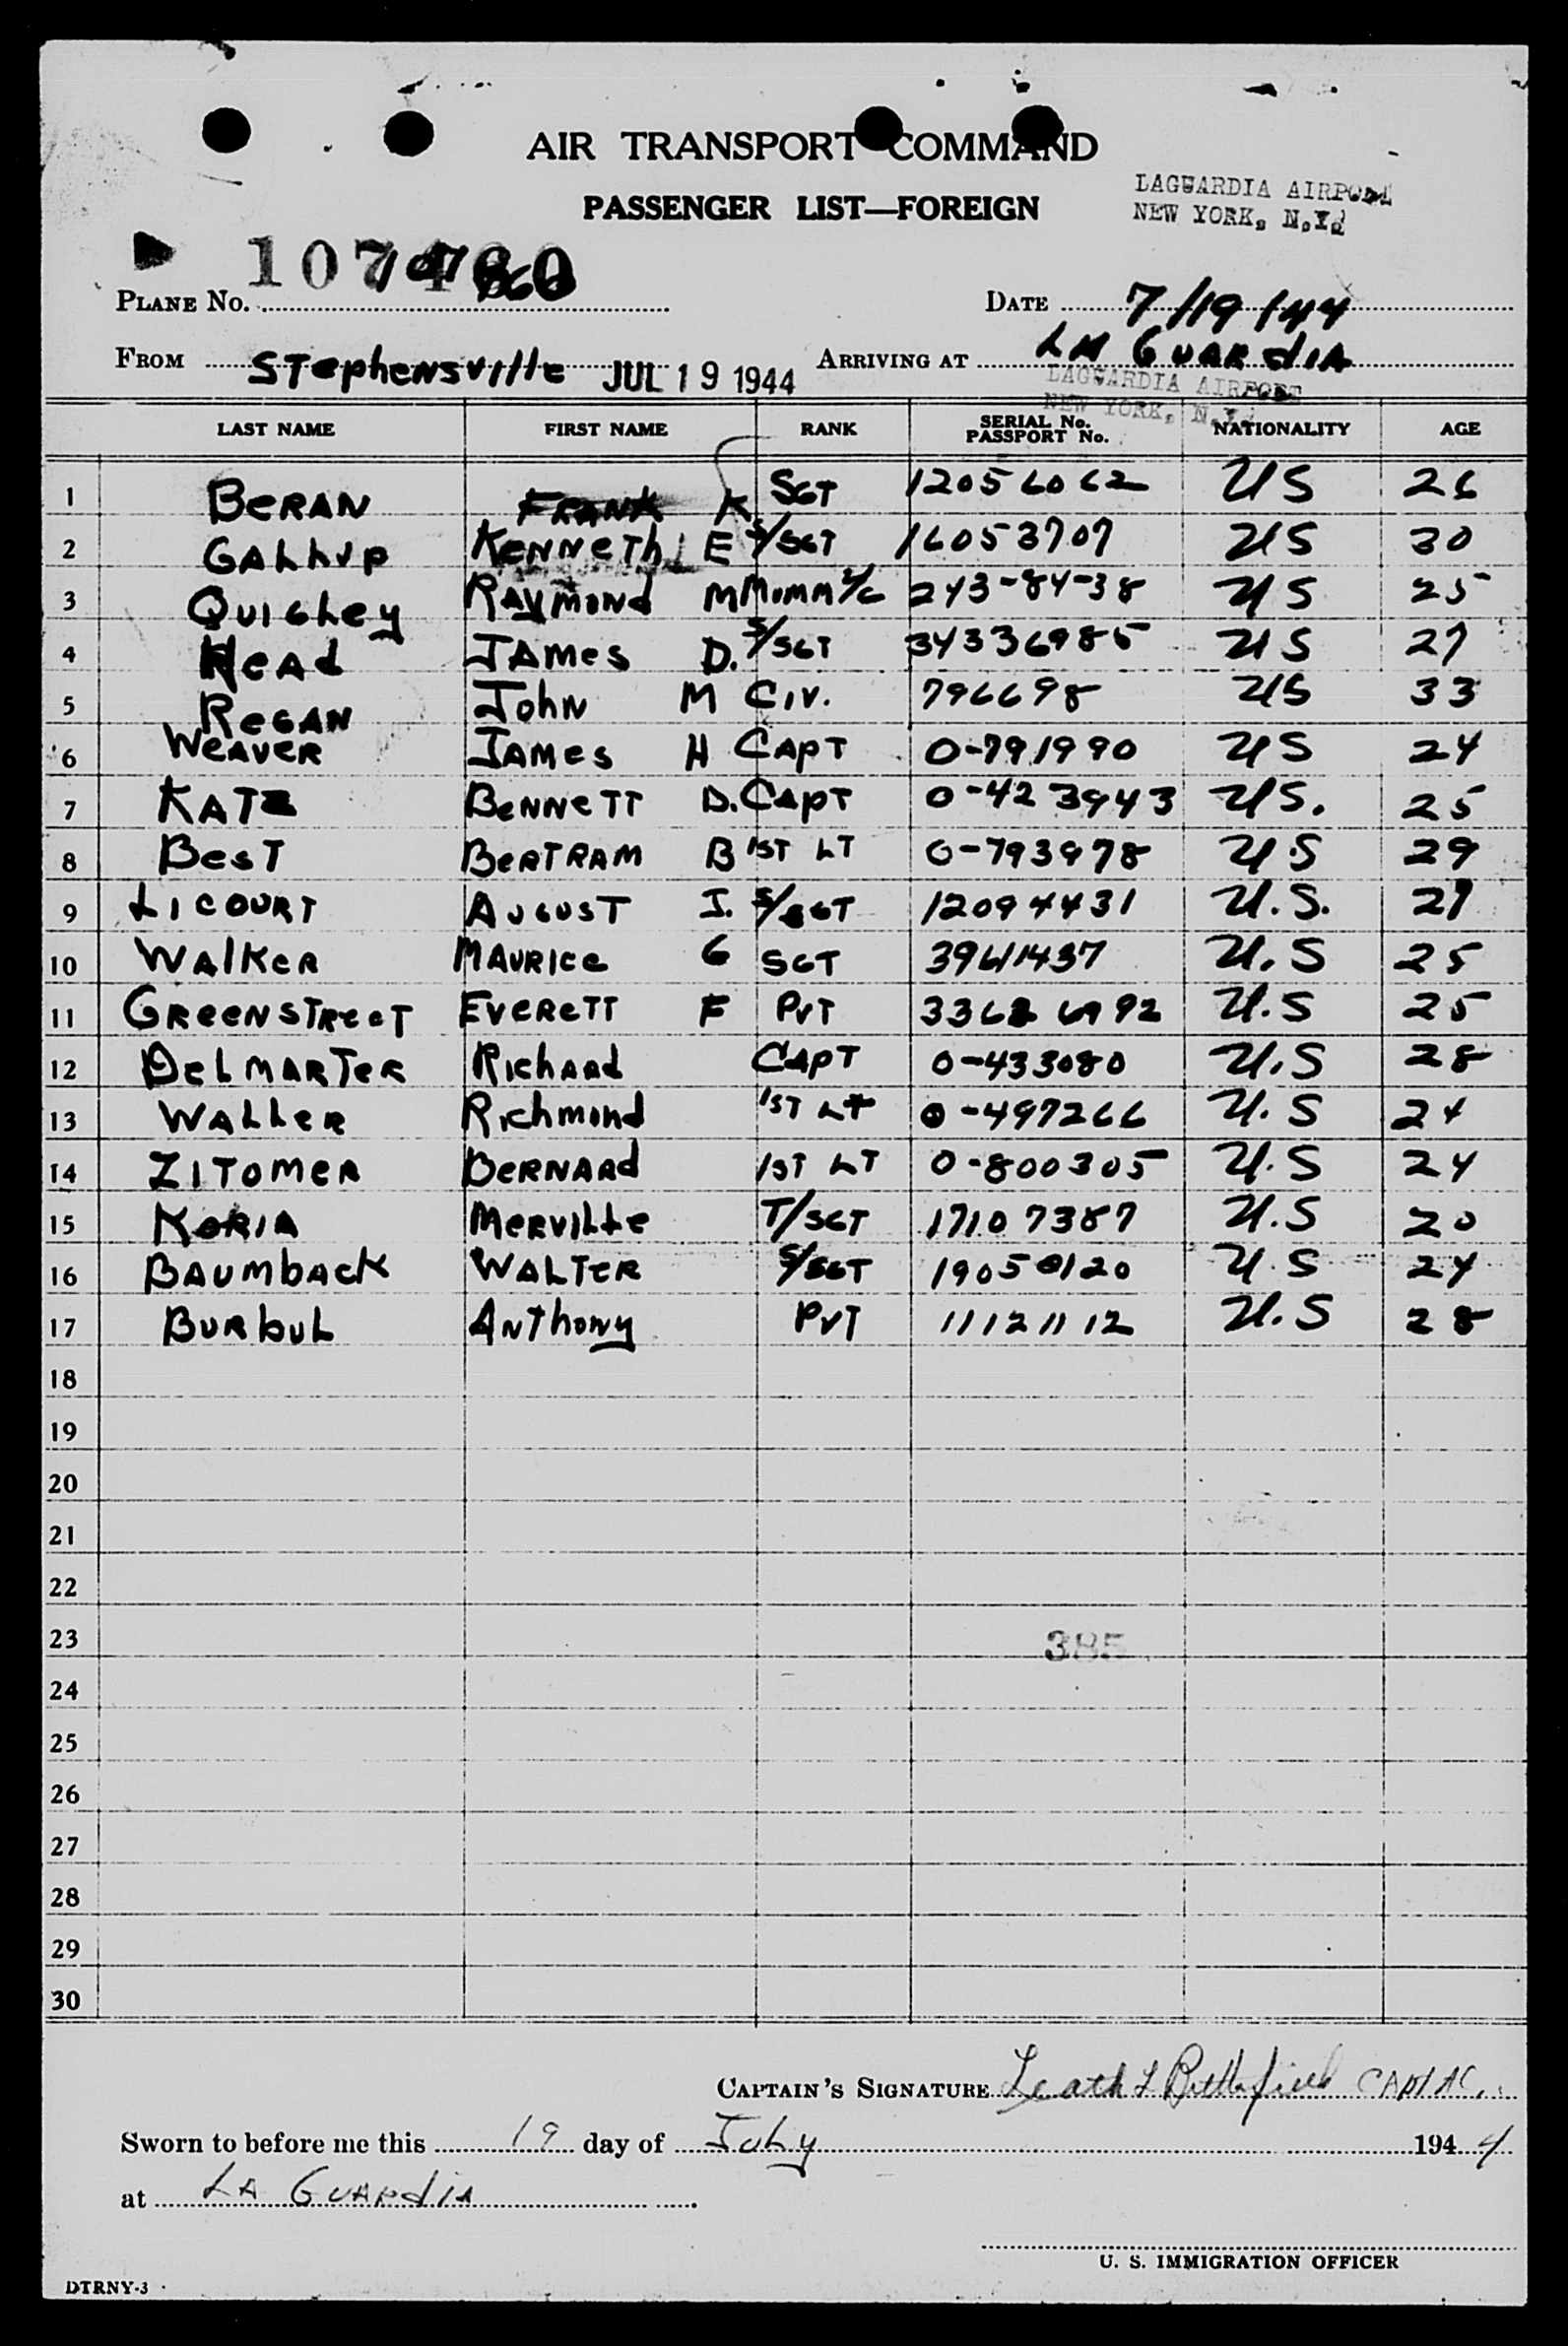 AIR TRANSPORT COMMAND
PASSENGER LIST—FOREIGN
LAGUARDIA AIRPORT
NEW YORK, N.Y.
PLANE No. 107460
DATE 7/19/44
FROM Stephensville JUL 19 1944 ARRIVING AT LA GUARDIA
LAGUARDIA AIRPORT
NEW YORK, N.Y.
LAST NAME FIRST NAME RANK SERIAL No. PASSPORT No. NATIONALITY AGE
1 BERAN FRANK K SGT 12056062 US 26
2 GALLUP KENNETH E S/SGT 16053707 US 30
3 QUIGLEY RAYMOND M MOMM 2/C 243-84-38 US 25
4 HEAD JAMES D. S/SGT 34336985 US 27
5 REGAN JOHN M CIV. 796698 US 33
6 WEAVER JAMES H CAPT O-791990 US 24
7 KATZ BENNETT D. CAPT O-423943 US. 25
8 BEST BERTRAM B 1ST LT O-793978 US 29
9 LICOURT AUGUST J. S/SGT 12094431 U.S. 27
10 WALKER MAURICE G SGT 39611437 U.S 25
11 GREENSTREET EVERETT F PVT U.S 25
12 DELMARTER RICHARD CAPT O-433080 U.S 28
13 WALLER RICHMOND 1ST LT O-497266 U.S 24
14 ZITOMER BERNARD 1ST LT O-800305 U.S 24
15 KORIA MERVILLE T/SGT 17107387 U.S 20
16 BAUMBACK WALTER S/SGT 19050120 U.S 24
17 BURBUL ANTHONY PVT 11121112 U.S 28
18
19
20
21
22
23 385
24
25
26
27
28
29
30
CAPTAIN'S SIGNATURE Leath L CAPT AC.
Sworn to before me this 19 day of July 1944
at LA GUARDIA
U. S. IMMIGRATION OFFICER
DTRNY-3